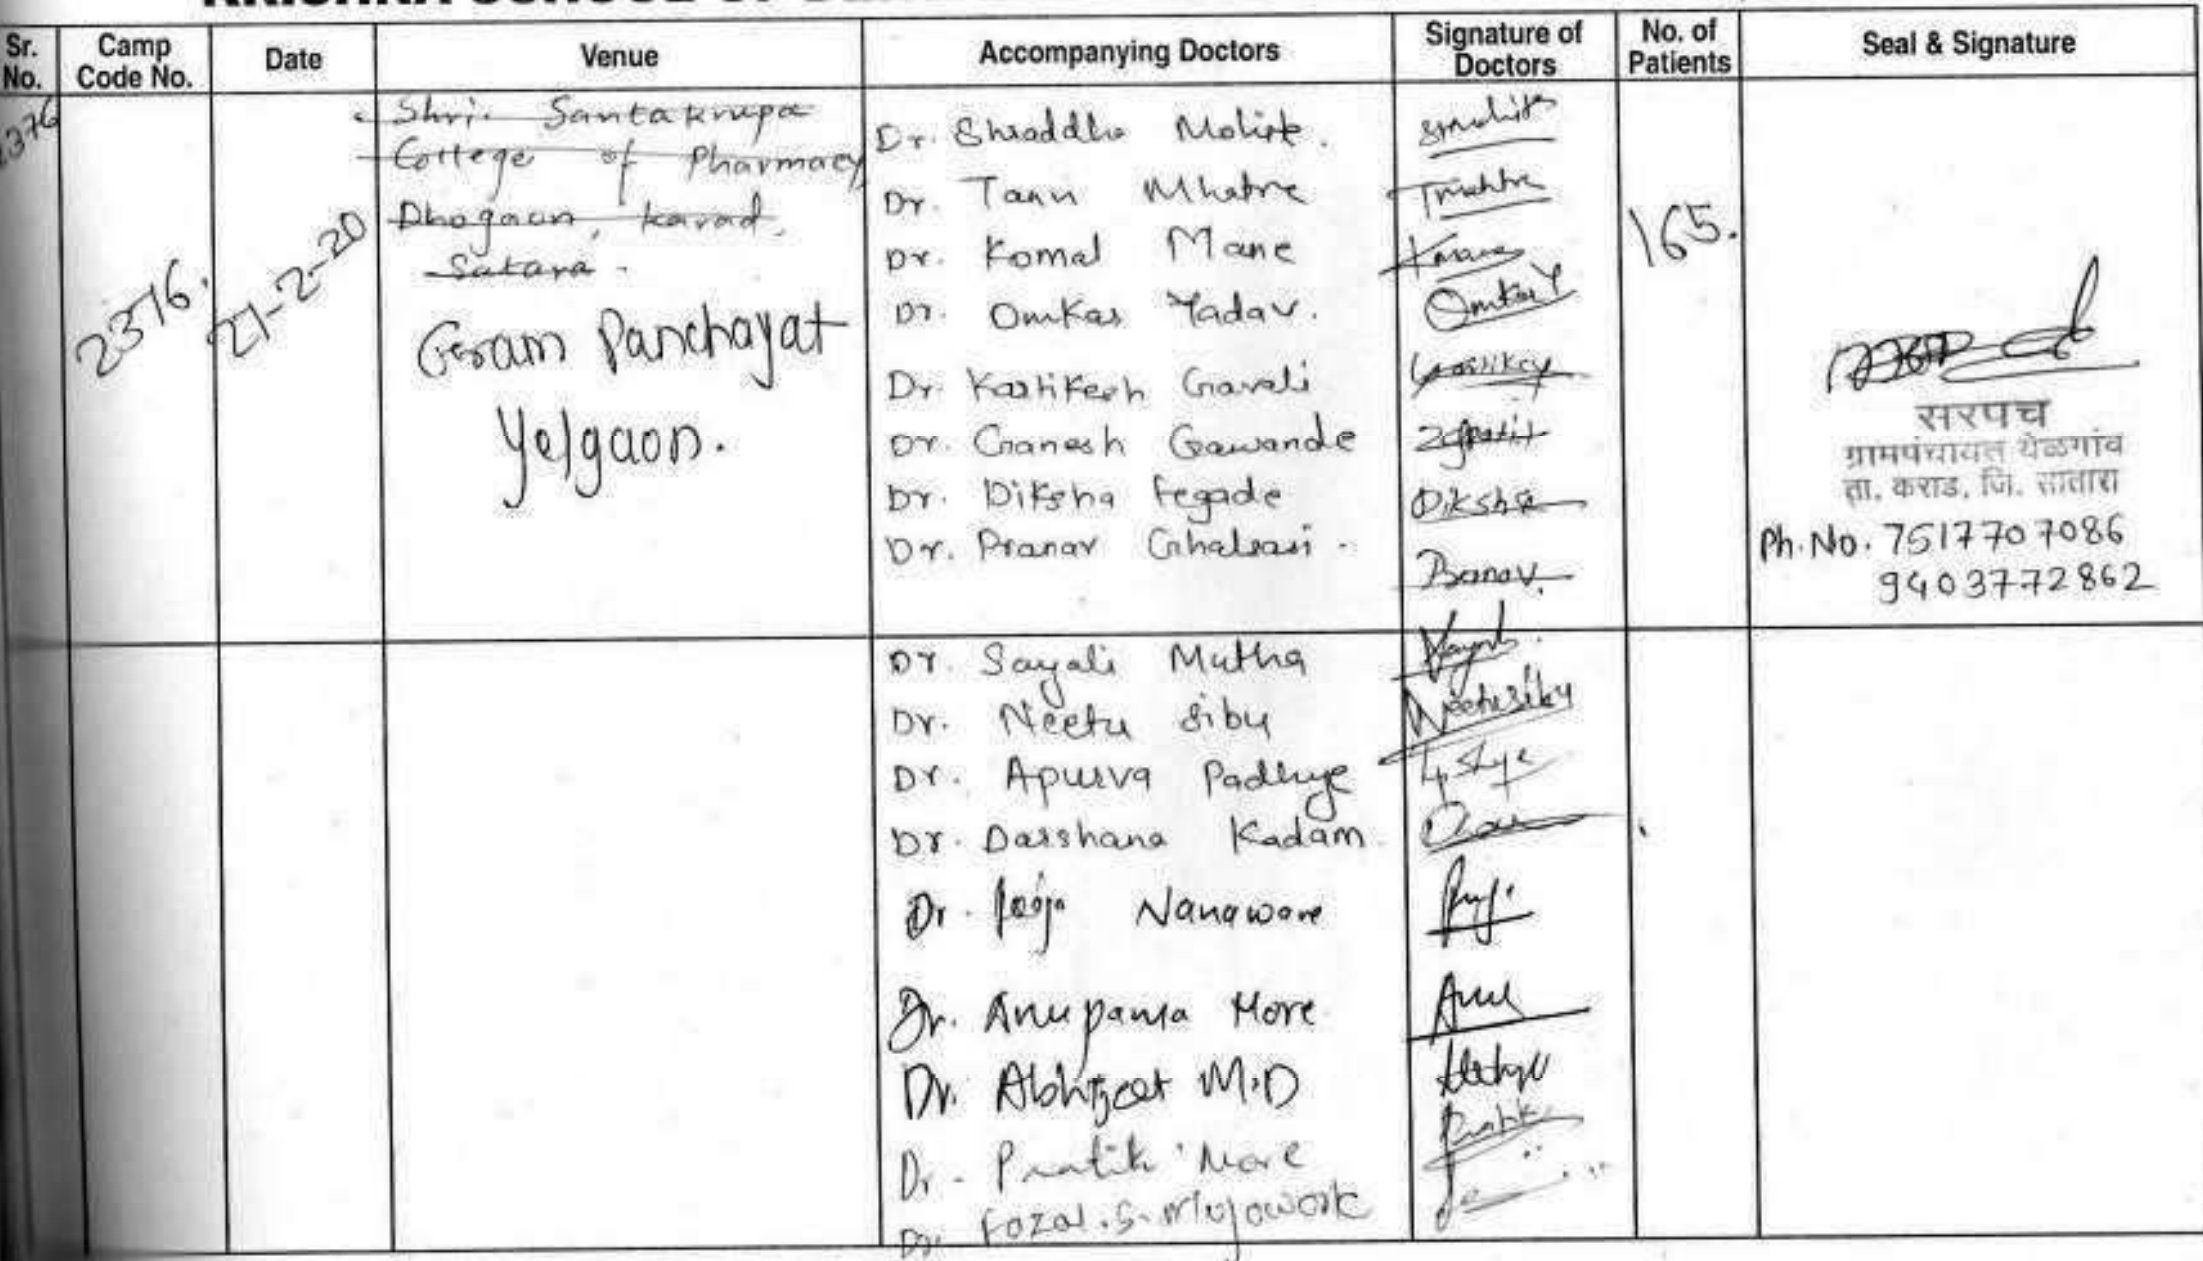 Sr. No.
Camp Code No.
Date
Venue
Accompanying Doctors
Signature of Doctors
No. of Patients
Seal & Signature
2376.
27-2-20
Shri. Santakrupa
College of Pharmacy
Dhogaon, karad,
Satara.
Gram Panchayat
Yelgaon.
Dr. Shraddha Mohite.
Dr. Tanu Mhatre
Dr. Komal Mane
Dr. Omkar Yadav.
Dr. Kartikesh Gavali
Dr. Ganesh Gawande
Dr. Diksha Fegade
Dr. Pranav
Omkar Y
Diksha
Pranav.
165.
सरपंच
ग्रामपंचायत येळगांव
ता. कराड, जि. सातारा
Ph. No. 7517707086
9403772862
Dr. Sayali Mutha
Dr. Neetu Sibu
Dr. Apurva Padhye
Dr. Darshana Kadam
Dr. Pooja Nanaware
Dr. Anupama More
Dr. Abhijeet M.D
Dr. Pratik More
Dr.
Neetu Sibu
Pratik